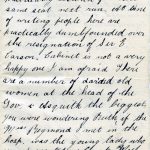 same seat next mon, ast time
of writing people here are
practically dumbfounded over
the resignation of Sir E
Carson. Cabinet is not a very
happy one I am afraid. There
are a number of old
women at the head of the
Gov. & Asquith the biggest.
you were wondering Ruth if the
Miss Raymond I met in the
hosp. was the young lady who